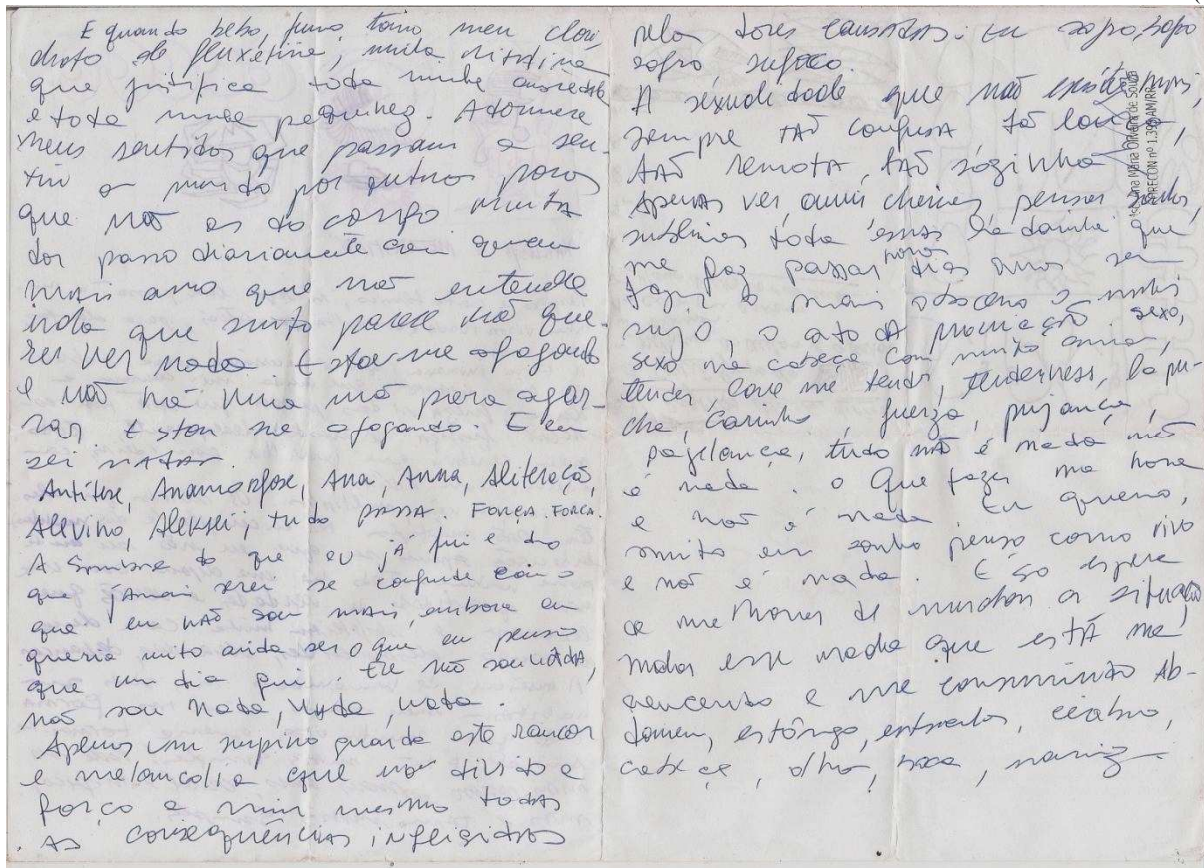 E quando bebo, fumo, tomo meu clori-
drato de fluxetina, minha ritalina
que justifica toda minha ansiedade
e toda minha pequinez. Adormece
meus sentidos que passam a sen-
tir o mundo por outros poros
que não os do corpo muita
dor passo diariamente com quem
mais amo que não entende
nada que sinto parece não que-
rer ver nada Estou me afogando
e não há uma mão para agar-
rar. Estou me afogando. E eu
sei nadar.
Antítese, Anamorfose, Ana, Anna, Aliteração,
Alevino, Aleksei, tudo passa. FORÇA. FORCA.
A sombra do que eu já fui e do
que jamais serei se confunde com o
que eu não sou mais, embora eu
queria muito ainda ser o que eu penso
que um dia fui. Eu não sou nada,
não sou nada, nada, nada.
Apenas um suspiro guarda este rancor
e melancolia que não divido e
forço a mim mesmo todas
as consequências infligidas
pelas dores causadas: Eu sofro, sofro
sofro, sufoco.
A sexualidade que não existe mais,
sempre tão confusa tão louca,
tão remota, tão sozinha
Apenas ver, ouvir, cheirar, pensar, sonhar,
sublimar toda essa ladainha que
me faz passar novos dias anos sem
fazer o mais obsceno o mais
sujo, o ato da procriação. sexo,
sexo na cabeça com muito amor,
tender, love me tender, tenderness, la pu-
cha, carinho, fuerza, pujança,
pajelança, tudo não é nada não
é nada. O que fazer na hora
e não é nada Eu quero,
muito eu sonho penso como vivo
e não é nada. E só espera
de melhoras de mudar a situação
mudar esse nada que está me
vencendo e me consumindo Ab-
domen, estômago, entranhas, cérebro,
cabeça, olho, boca, nariz
Maria Oliveira de Souza